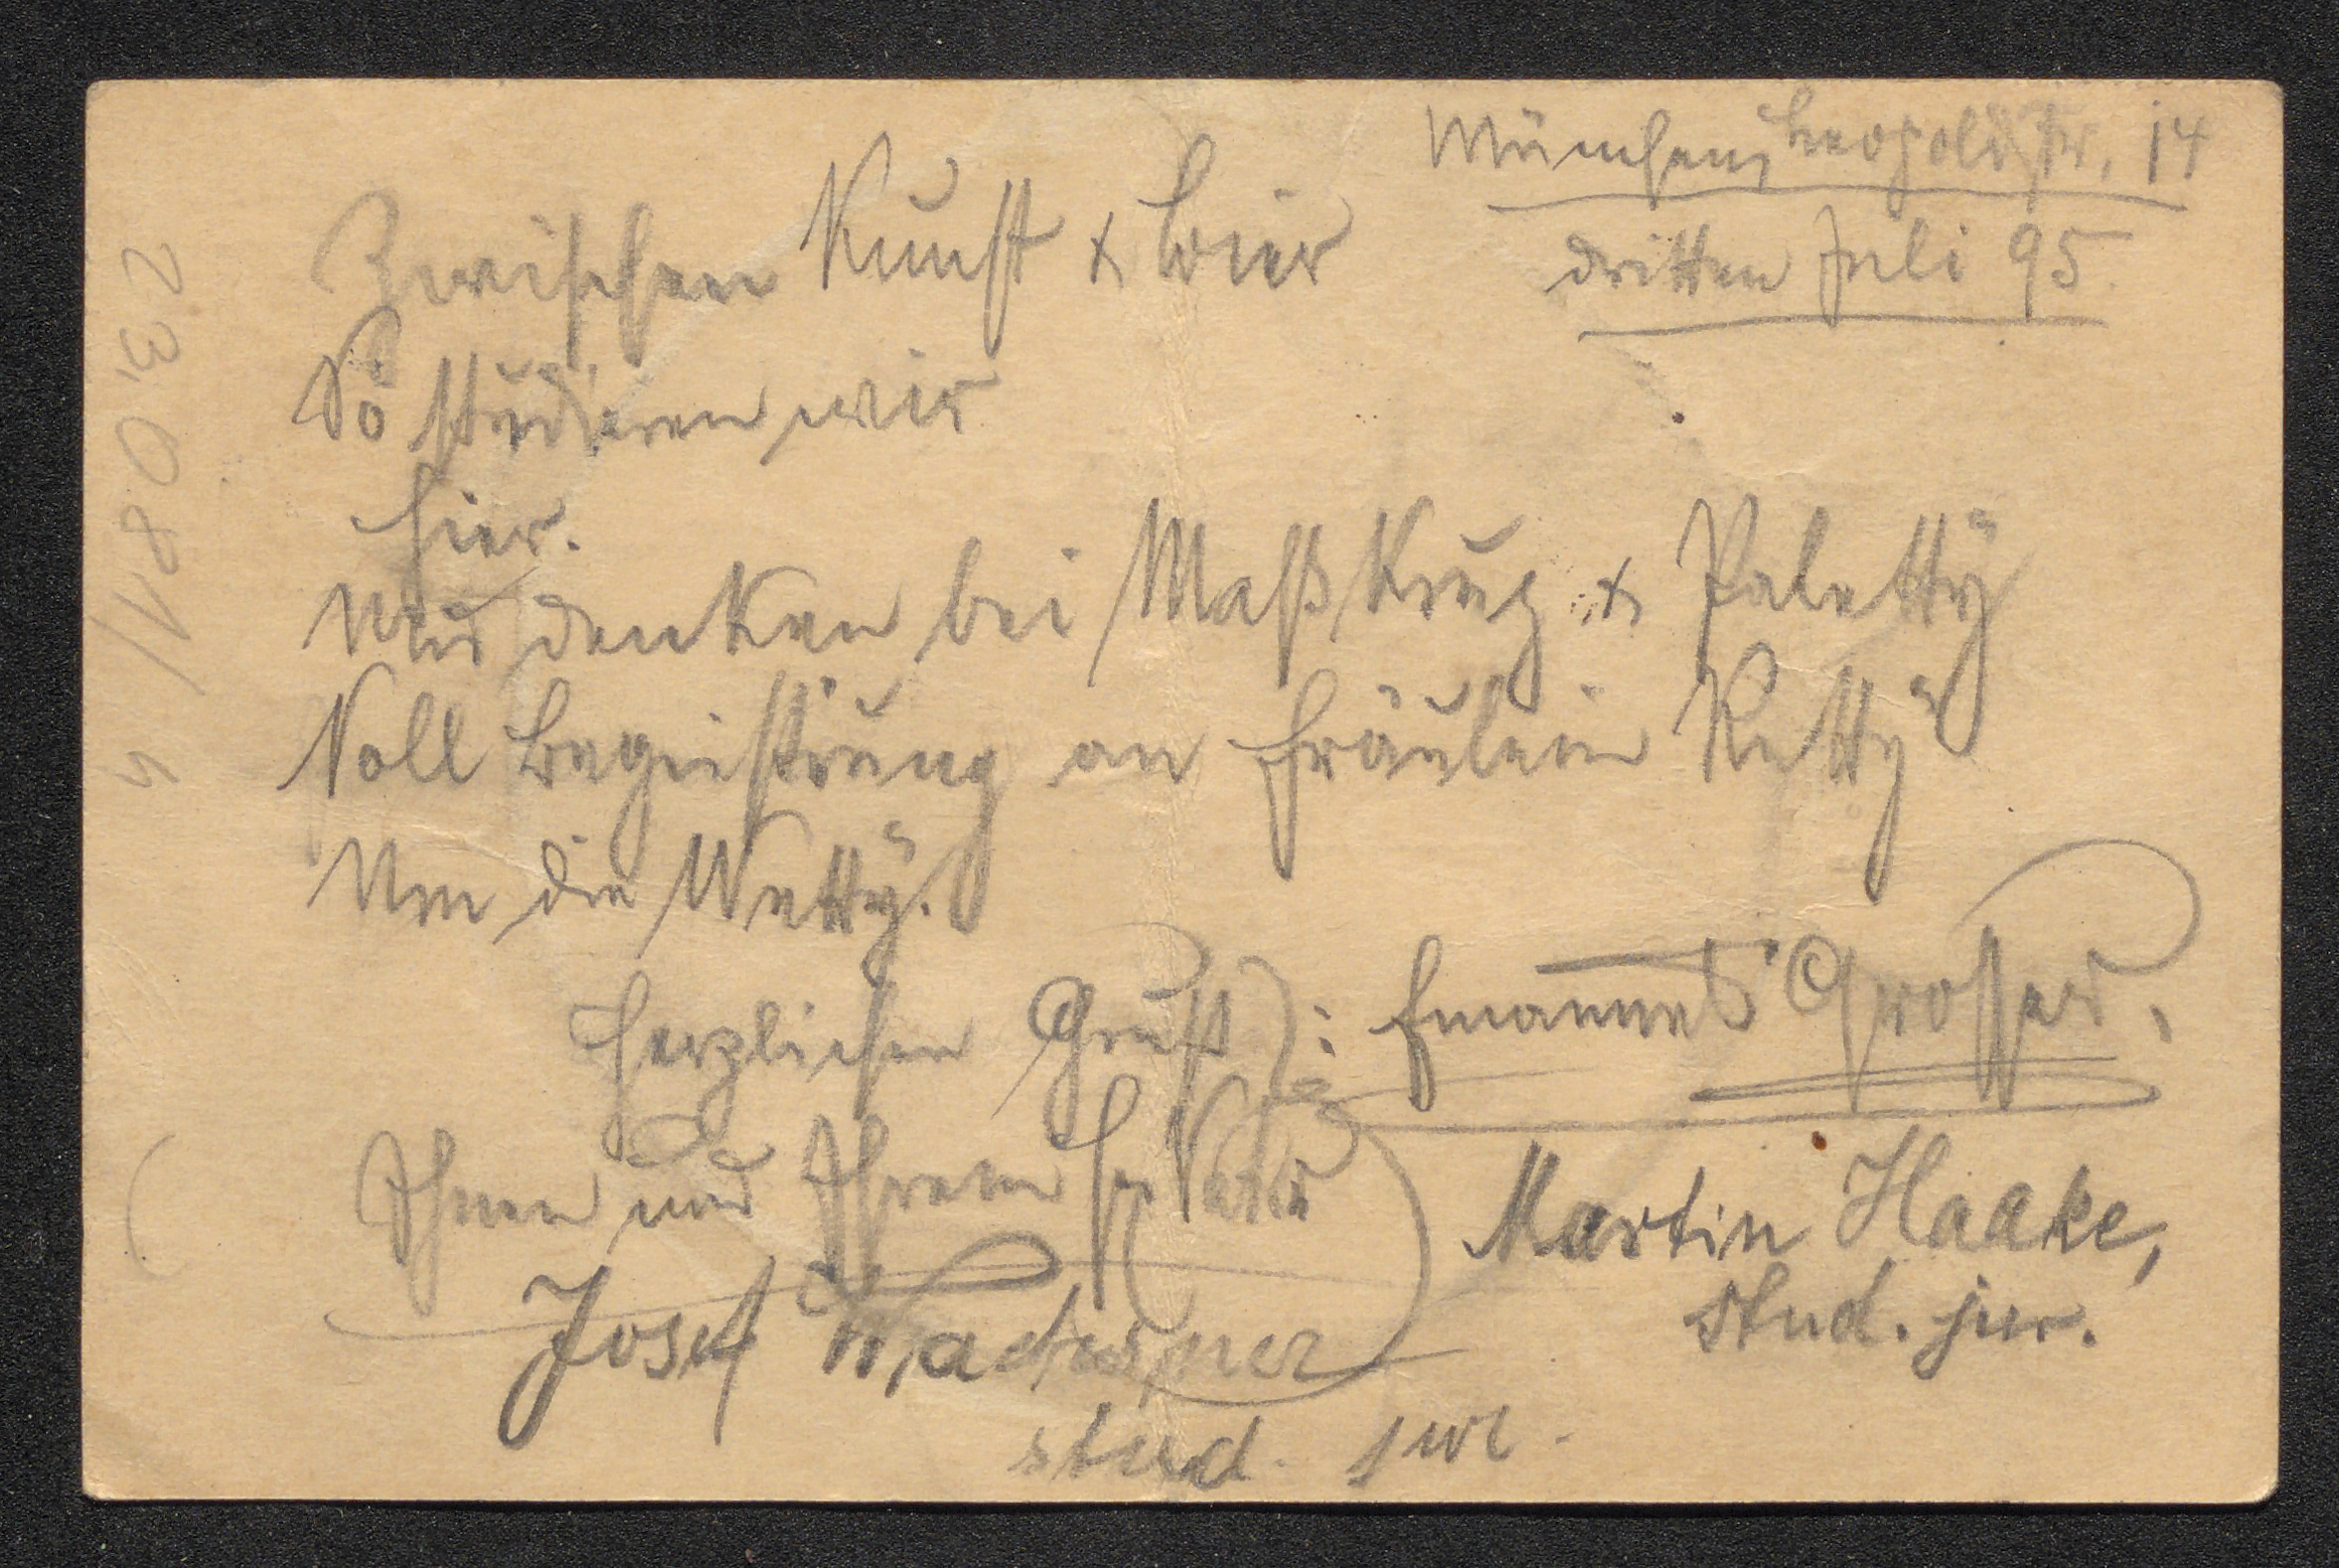 München, Leopoldstr. 14
dritten Juli 95.
Zwischen Kunst & Bier
So studieren wir
hier.
Und denken bei Maßkrug & Paletty
Voll Begeistrung an Fräulein Ketty
Um die Wetty.
Herzlichen Gruß: Emanuel Grosser.
Ihnen und Ihrem Hr Vater
Martin Haake,
stud. jur.
Josef
stud. jur.
23,081/4